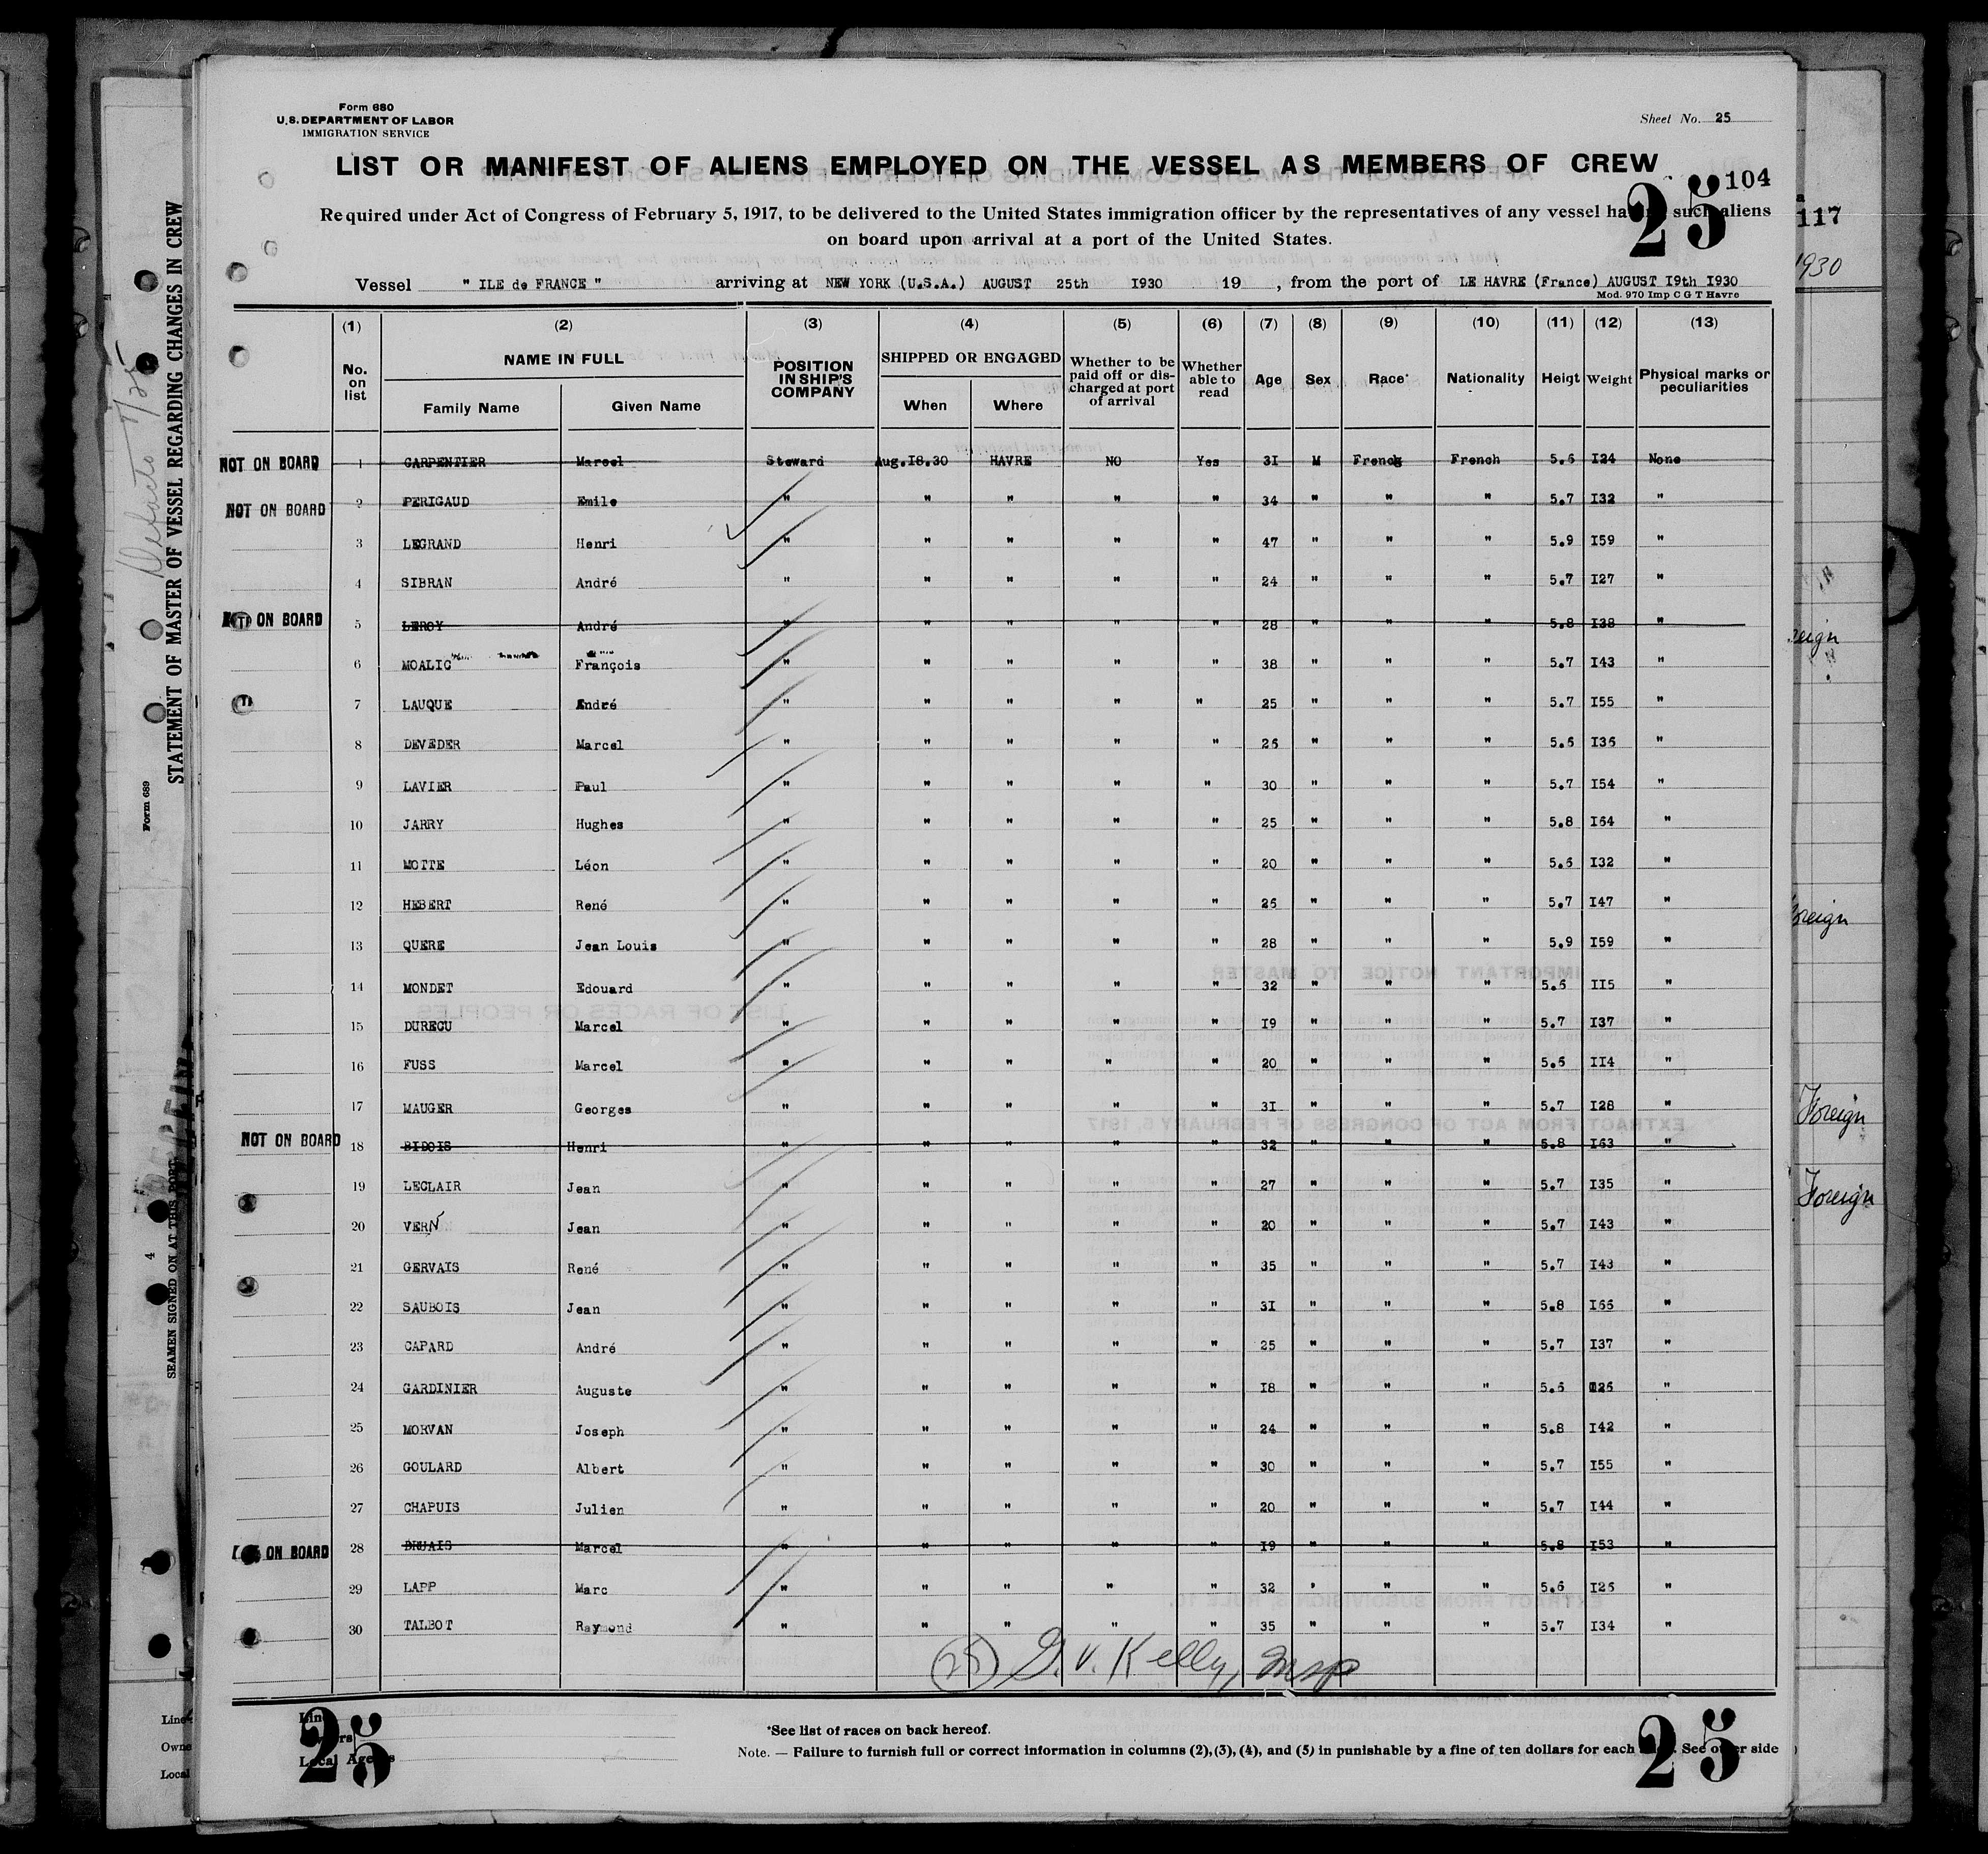 Form 680
U.S. DEPARTMENT OF LABOR
IMMIGRATION SERVICE
Sheet No. 25
LIST OR MANIFEST OF ALIENS EMPLOYED ON THE VESSEL AS MEMBERS OF CREW
25 104
Required under Act of Congress of February 5, 1917, to be delivered to the United States immigration officer by the representatives of any vessel having such aliens
on board upon arrival at a port of the United States.
Vessel " ILE de FRANCE " arriving at NEW YORK (U.S.A.) AUGUST 25th I930 19 , from the port of LE HAVRE (France) AUGUST I9th I930
Mod. 970 Imp C G T Havre
(1) (2) (3) (4) (5) (6) (7) (8) (9) (10) (11) (12) (13)
No. on list NAME IN FULL Family Name Given Name POSITION IN SHIP'S COMPANY SHIPPED OR ENGAGED When Where Whether to be paid off or discharged at port of arrival Whether able to read Age Sex Race* Nationality Heigt Weight Physical marks or peculiarities
NOT ON BOARD 1 CARPENTIER Marcel Steward Aug.I8.30 HAVRE NO Yes 3I M French French 5.6 I24 None
NOT ON BOARD 2 PERIGAUD Emile " " " " " 34 " " " 5.7 I32 "
3 LEGRAND Henri " " " " " 47 " " " 5.9 I59 "
4 SIBRAN André " " " " " 24 " " " 5.7 I27 "
NOT ON BOARD 5 LEROY André " " " " " 28 " " " 5.8 I38 "
6 MOALIC François " " " " " 38 " " " 5.7 I43 "
7 LAUQUE André " " " " " 25 " " " 5.7 I55 "
8 DEVEDER Marcel " " " " " 26 " " " 5.6 I36 "
9 LAVIER Paul " " " " " 30 " " " 5.7 I54 "
10 JARRY Hughes " " " " " 25 " " " 5.8 I64 "
11 MOTTE Léon " " " " " 20 " " " 5.6 I32 "
12 HEBERT René " " " " " 26 " " " 5.7 I47 "
13 QUERE Jean Louis " " " " " 28 " " " 5.9 I59 "
14 MONDET Edouard " " " " " 32 " " " 5.6 II5 "
15 DURECU Marcel " " " " " I9 " " " 5.7 I37 "
16 FUSS Marcel " " " " " 20 " " " 5.6 II4 "
17 MAUGER Georges " " " " " 3I " " " 5.7 I28 "
NOT ON BOARD 18 BIDOIS Henri " " " " " 32 " " " 5.8 I63 "
19 LECLAIR Jean " " " " " 27 " " " 5.7 I35 "
20 VERN Jean " " " " " 20 " " " 5.7 I43 "
21 GERVAIS René " " " " " 35 " " " 5.7 I43 "
22 SAUBOIS Jean " " " " " 3I " " " 5.8 I66 "
23 CAPARD André " " " " " 25 " " " 5.7 I37 "
24 GARDINIER Auguste " " " " " I8 " " " 5.6 I26 "
25 MORVAN Joseph " " " " " 24 " " " 5.8 I42 "
26 GOULARD Albert " " " " " 30 " " " 5.7 I55 "
27 CHAPUIS Julien " " " " " 20 " " " 5.7 I44 "
NOT ON BOARD 28 DRUAIS Marcel " " " " " I9 " " " 5.8 I53 "
29 LAPP Marc " " " " " 32 " " " 5.6 I26 "
30 TALBOT Raymond " " " " " 35 " " " 5.7 I34 "
(25) G. V. Kelly, Insp
25
Line
Owners
Local Agents
*See list of races on back hereof.
Note. — Failure to furnish full or correct information in columns (2),(3),(4), and (5) in punishable by a fine of ten dollars for each See other side
25
STATEMENT OF MASTER OF VESSEL REGARDING CHANGES IN CREW
Form 689
SEAMEN SIGNED ON AT THIS PORT
4
Line
Owne
Local
117
1930
reign
oreign
Foreign
Foreign